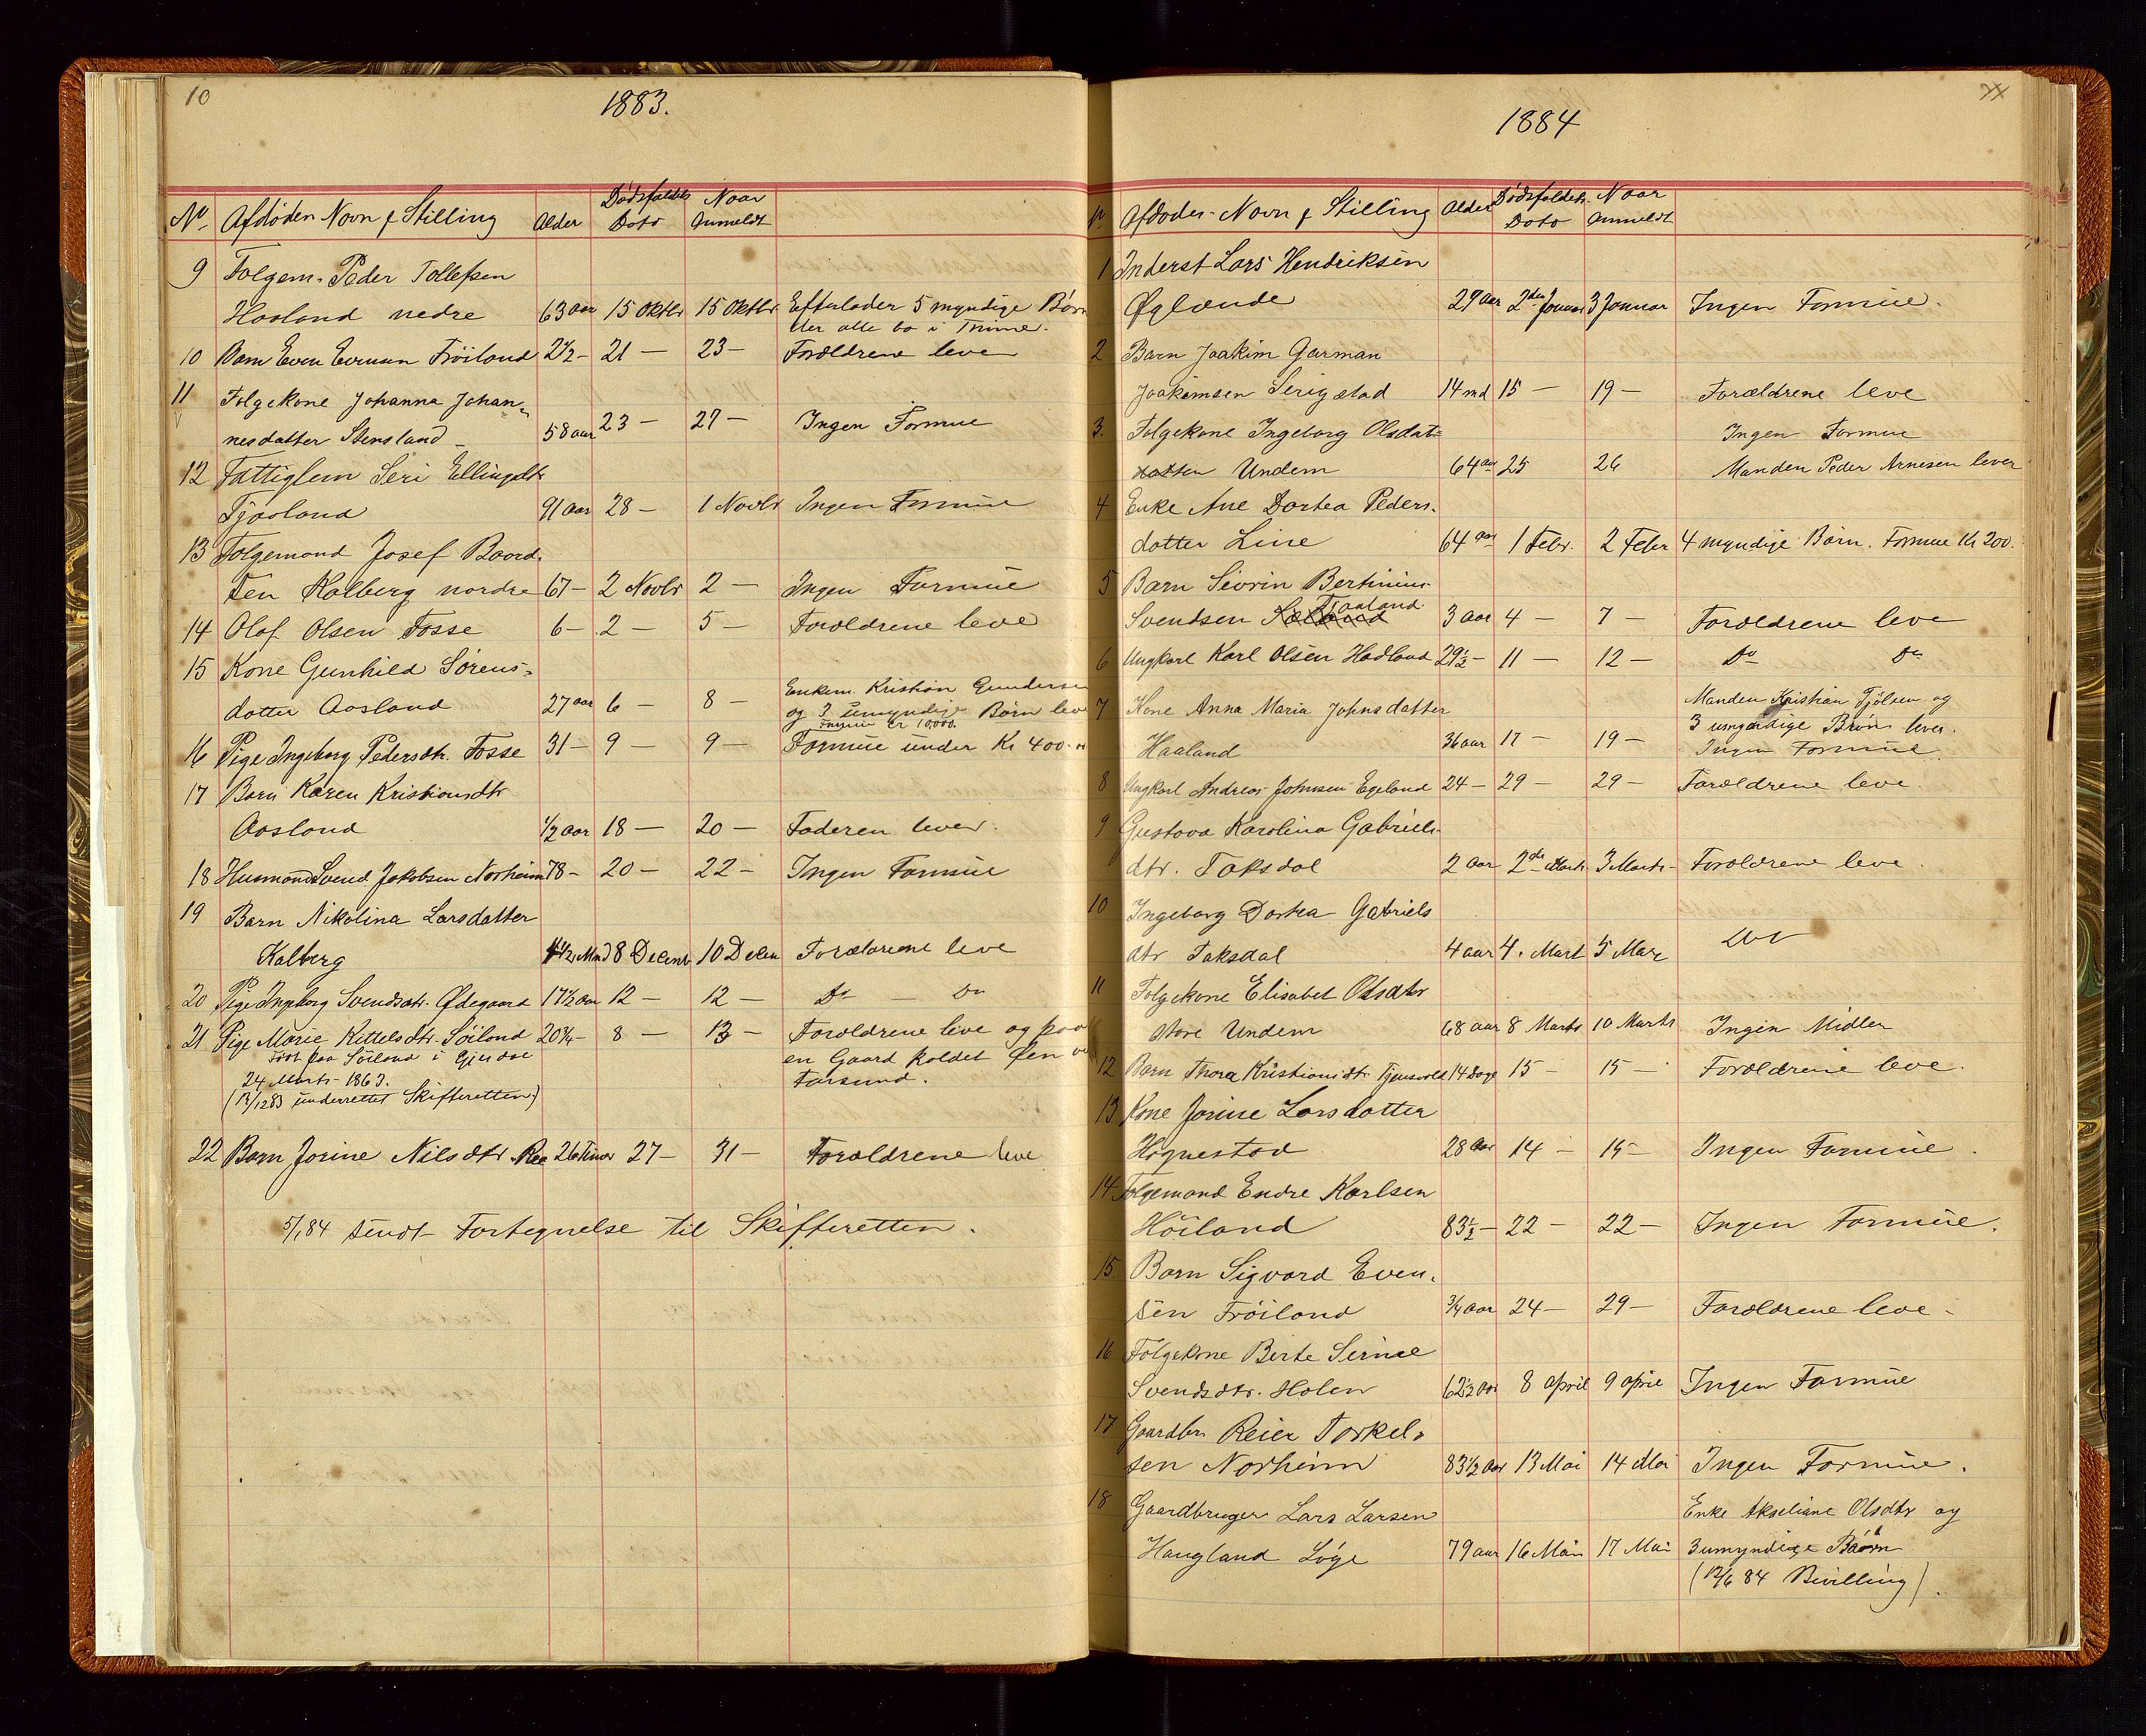 10
1883.
No Afdødes Navn & Stilling Alder Dødsfaldets Dato Naar Anmeldt
9 Folgem. Peder Tollefsen
Haaland nedre 63 aar 15 Oktbr 15 Oktbr Efterlader 5 myndige Børn
der alle bo i Time.
10 Barn Even Evensen Fröiland 2½ - 21 - 23 - Forældrene leve
11 Folgekone Johanna Johan-
nesdatter Stensland - 58 aar 23 - 27 - Ingen Formue
12 Fattiglem Seri Ellingsdtr
Tjaaland 91 aar 28 - 1 Novbr Ingen Formue
13 Folgemand Josef Baard-
sen Kalberg nordre 67 - 2 Novbr 2 - Ingen Formue
14 Olaf Olsen Fosse 6 - 2 - 5 - Forældrene leve
15 Kone Gunhild Sörens-
datter Aasland 27 aar 6 - 8 - Enkem. Kristian Gundersen
og 3 umyndige Børn leve
Formue er 10,000.
16 Pige Ingeborg Pedersdtr. Fosse 31 - 9 - 9 - Formue under Kr 400.
17 Barn Karen Kristiansdtr
Aasland ½ aar 18 - 20 - Faderen lever.
18 Husmand Svend Jakobsen Norheim 78 - 20 - 22 - Ingen Formue
19 Barn Nikolina Larsdatter
Kalberg 1½ Mnd 8 Decemb 10 Decem Forældrene leve
20 Pige Ingeborg Svendsdtr. Ødegaard 17½ aar 12 - 12 - Do Do
21 Pige Marie Kittelsdtr. Söiland 20¾ - 8 - 13 - Forældrene leve og paa
Født paa Söiland i Gjesdal en Gaard kaldet Øen v
24 Marts 1863. Farsund.
(13/12 83 underrettet Skifteretten)
22 Barn Jorine Nilsdtr. Ree 26 Timer 27 - 31 - Forældrene leve
5/1 84 sendt Fortegnelse til Skifteretten.
1884
N. Afdødes Navn & Stilling Alder Dødsfaldets Dato Naar Anmeldt
1 Inderst Lars Hendriksen
Øglænde 29 aar 2den Januar 3 Januar Ingen Formue.
2 Barn Joakim Garman
Joakimsen Serigstad 14 md 15 - 19 - Forældrene leve
3. Folgekone Ingeborg Olsdat= Ingen Formue
Undem 64 aar 25 26 Manden Peder Arnesen lever
4 Enke Ane Dortea Peders-
datter Line 64 aar 1 Febr. 2 Febr 4 myndige Børn. Formue Kr 200.
5 Barn Sevrin Bertinius
Svendsen Taaland 3 aar 4 - 7 - Forældrene leve
6 Ungkarl Karl Olsen Hadland 29½ - 11 - 12 - Do Do
7 Kone Anna Maria Johnsdatter Manden Kristian Tjölsen og
3 umyndige Børn lever.
Haaland 36 aar 17 - 19 - Ingen Formue
8 Ungkarl Andreas Johnsen Egeland 24 - 29 - 29 - Forældrene leve.
9 Gustava Karolina Gabriels-
dtr. Taksdal 2 aar 2den Marts 3 Marts - Forældrene leve.
10 Ingeborg Dortea Gabriels
dtr Taksdal 4 aar 4. Mart 5 Mar
11 Folgekone Elisabet Olsdtr
store Undem 68 aar 8 Marts 10 Marts Ingen Midler
12 Barn Thora Kristiansdtr. Tjensvold 14 Dage 15 - 15 - Forældrene leve.
13 Kone Jorine Larsdatter
Hognestad 28 aar 14 - 15 - Ingen Formue.
14 Folgemand Endre Karlsen
Höiland 83½ - 22 - 22 - Ingen Formue.
15 Barn Sigvard Even-
sen Fröiland ¾ aar 24 - 29 - Forældrene leve -
16 Folgekone Berte Serine
Svendsdtr. Holen 62½ aar 8 April 9 April Ingen Formue
17 Gaardbr. Reier Torkel-
sen Norheim 83½ aar 13 Mai 14 Mai Ingen Formue.
18 Gaardbruger Lars Larsen Enke Akseliane Olsdtr og
Haugland Løge 79 aar 16 Mai 17 Mai 3 umyndige Børn
(12/6 84 Bevilling).